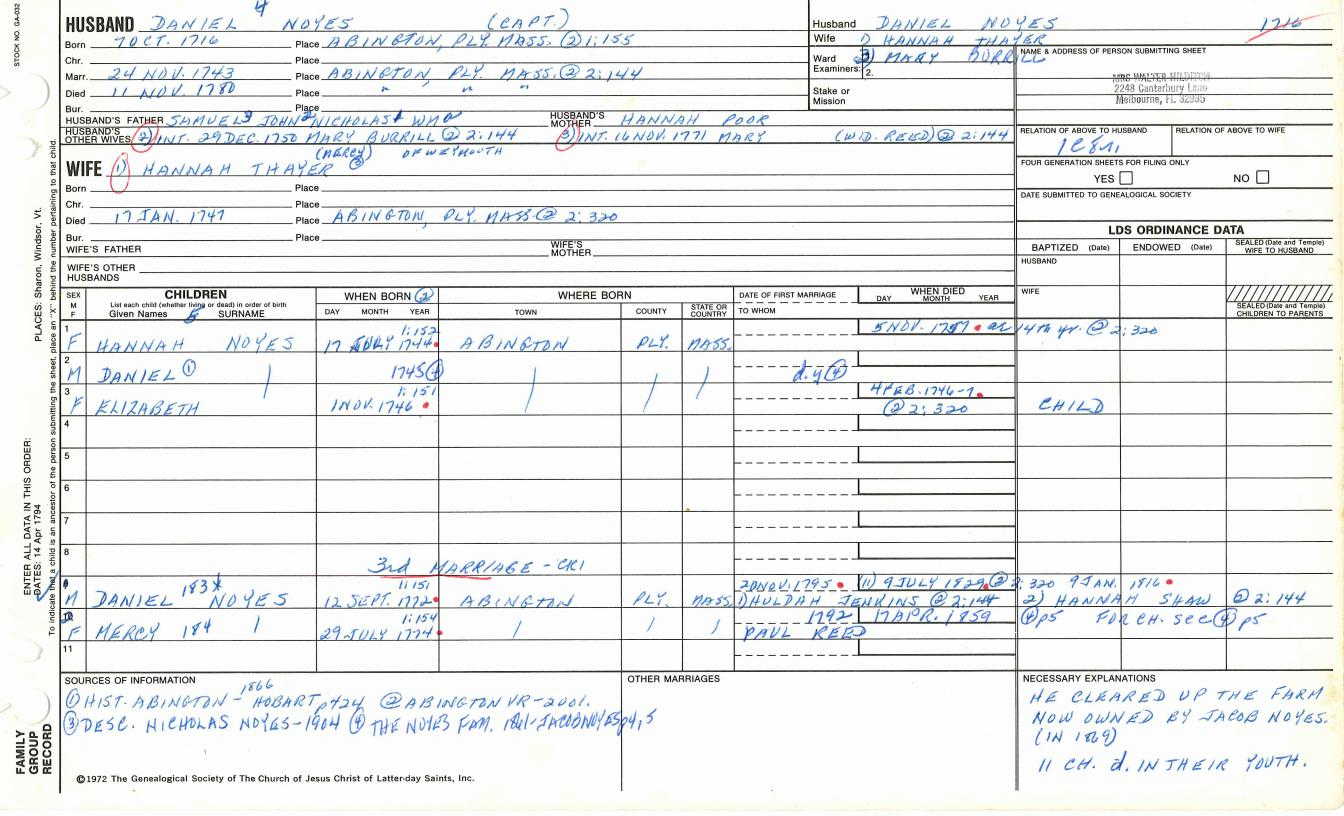 STOCK NO. GA-032
4
HUSBAND DANIEL NOYES (CAPT.)
Born 7 OCT. 1716 Place ABINGTON, PLY. MASS. (2) 1:155
Chr. Place
Marr. 24 NOV. 1743 Place ABINGTON, PLY. MASS. (2) 2:144
Died 11 NOV. 1780 Place " " "
Bur. Place
HUSBAND'S FATHER SAMUEL3 JOHN2 NICHOLAS1 WMo HUSBAND'S MOTHER HANNAH POOR
HUSBAND'S OTHER WIVES (2) INT. 29 DEC. 1750 MARY BURRILL (2) 2:144 (3) INT. 16 NOV. 1771 MARY (WID. REED) (2) 2:144
(MERCY) OF WEYMOUTH
Husband DANIEL NOYES 1716
Wife 1) HANNAH THAYER
Ward 2) MARY BURRILL
Examiners: 2.
Stake or Mission
NAME & ADDRESS OF PERSON SUBMITTING SHEET
MRS WALTER
2248 Canterbury Lane
Melbourne, FL 32935
RELATION OF ABOVE TO HUSBAND RELATION OF ABOVE TO WIFE
FOUR GENERATION SHEETS FOR FILING ONLY
YES NO
DATE SUBMITTED TO GENEALOGICAL SOCIETY
WIFE 1) HANNAH THAYER (3)
Born Place
Chr. Place
Died 17 JAN. 1747 Place ABINGTON, PLY. MASS. (2) 2:320
Bur. Place
WIFE'S FATHER WIFE'S MOTHER
WIFE'S OTHER HUSBANDS
LDS ORDINANCE DATA
BAPTIZED (Date) ENDOWED (Date) SEALED (Date and Temple) WIFE TO HUSBAND
HUSBAND
WIFE
SEALED (Date and Temple) CHILDREN TO PARENTS
SEX M F
CHILDREN
List each child (whether living or dead) in order of birth
Given Names 5 SURNAME
WHEN BORN (2)
DAY MONTH YEAR
WHERE BORN
TOWN COUNTY STATE OR COUNTRY
DATE OF FIRST MARRIAGE
TO WHOM
WHEN DIED
DAY MONTH YEAR
1 F HANNAH NOYES 17 JULY 1744 1:152 ABINGTON PLY. MASS. 5 NOV. 1757 ae 14th yr. (2) 2:320
2 M DANIEL (1) 1745 (4) d.y (4)
3 F ELIZABETH 1 NOV. 1746 1:151 4 FEB. 1746-7 (2) 2:320 CHILD
4
5
6
7
8
3rd MARRIAGE - CR1
M DANIEL 183X NOYES 12 SEPT. 1772 1:151 ABINGTON PLY. MASS. 20 NOV. 1795 (11) 9 JULY 1829 (2) 2:320 9 JAN. 1816
1) HULDAH JENKINS (2) 2:144 2) HANNAH SHAW (2) 2:144
F MERCY 184 29 JULY 1774 1:154 1792 17 APR. 1859 (4) p5 FOR CH. see (4) p5
PAUL REED
11
SOURCES OF INFORMATION
(1) HIST. ABINGTON - 1866 HOBART p424 (2) ABINGTON VR-2001.
(3) DESC. NICHOLAS NOYES-1904 (4) THE NOYES FAM. 1861-JACOB NOYES p4,5
OTHER MARRIAGES
NECESSARY EXPLANATIONS
HE CLEARED UP THE FARM
NOW OWNED BY JACOB NOYES.
(IN 1869)
11 CH. d. IN THEIR YOUTH.
©1972 The Genealogical Society of The Church of Jesus Christ of Latter-day Saints, Inc.
FAMILY GROUP RECORD
ENTER ALL DATA IN THIS ORDER:
DATES: 14 Apr 1794
PLACES: Sharon, Windsor, Vt.
To indicate that a child is an ancestor of the person submitting the sheet, place an "X" behind the number pertaining to that child.